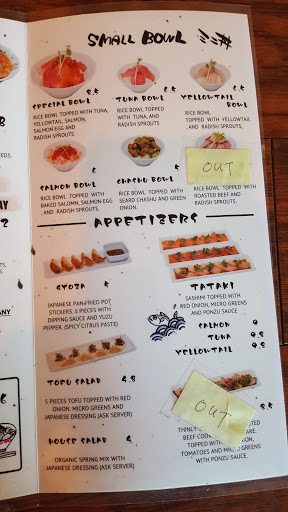 SMALL BOWL ミニ丼
SPECIAL BOWL 8.5
RICE BOWL TOPPED WITH TUNA,
YELLOWTAIL, SALMON,
SALMON EGG AND
RADISH SPROUTS
TUNA BOWL 8.5
RICE BOWL TOPPED
WITH TUNA, AND
RADISH SPROUTS
YELLOWTAIL
BOWL
RICE BOWL
TOPPED WITH YELLOWTAIL
, AND RADISH SPROUTS,
SALMON BOWL 6
RICE BOWL TOPPED WITH
BAKED SALOMN, SALMON EGG
AND RADISH SPROUTS
CHASHU BOWL 6
RICE BOWL TOPPED WITH
SEARD CHASHU AND GREEN
ONION.
OUT
RICE BOWL TOPPED WITH
ROASTED BEEF AND
RADISH SPROUTS.
APPETIZERS
GYOZA 5
JAPANESE PAN-FRIED POT
STICKERS. 5 PIECES WITH
DIPPING SAUCE AND YUZU
PEPPER. (SPICY CITRUS PASTE)
TATAKI
SASHIMI TOPPED WITH
RED ONION, MICRO GREENS
AND PONZU SAUCE
SALMON 9
TUNA 9.8
YELLOWTAIL 9.8
TOFU SALAD 4.8
5 PIECES TOFU TOPPED WITH RED
ONION, MICRO GREENS AND
JAPANESE DRESSING (ASK SERVER)
HOUSE SALAD 4
ORGANIC SPRING MIX WITH
JAPANESE DRESSING (ASK SERVER)
OUT
8.5
THINLY
BEEF COOK
TOPPED WITH
TOMATOES AND MICRO
WITH PONZU SAUCE.